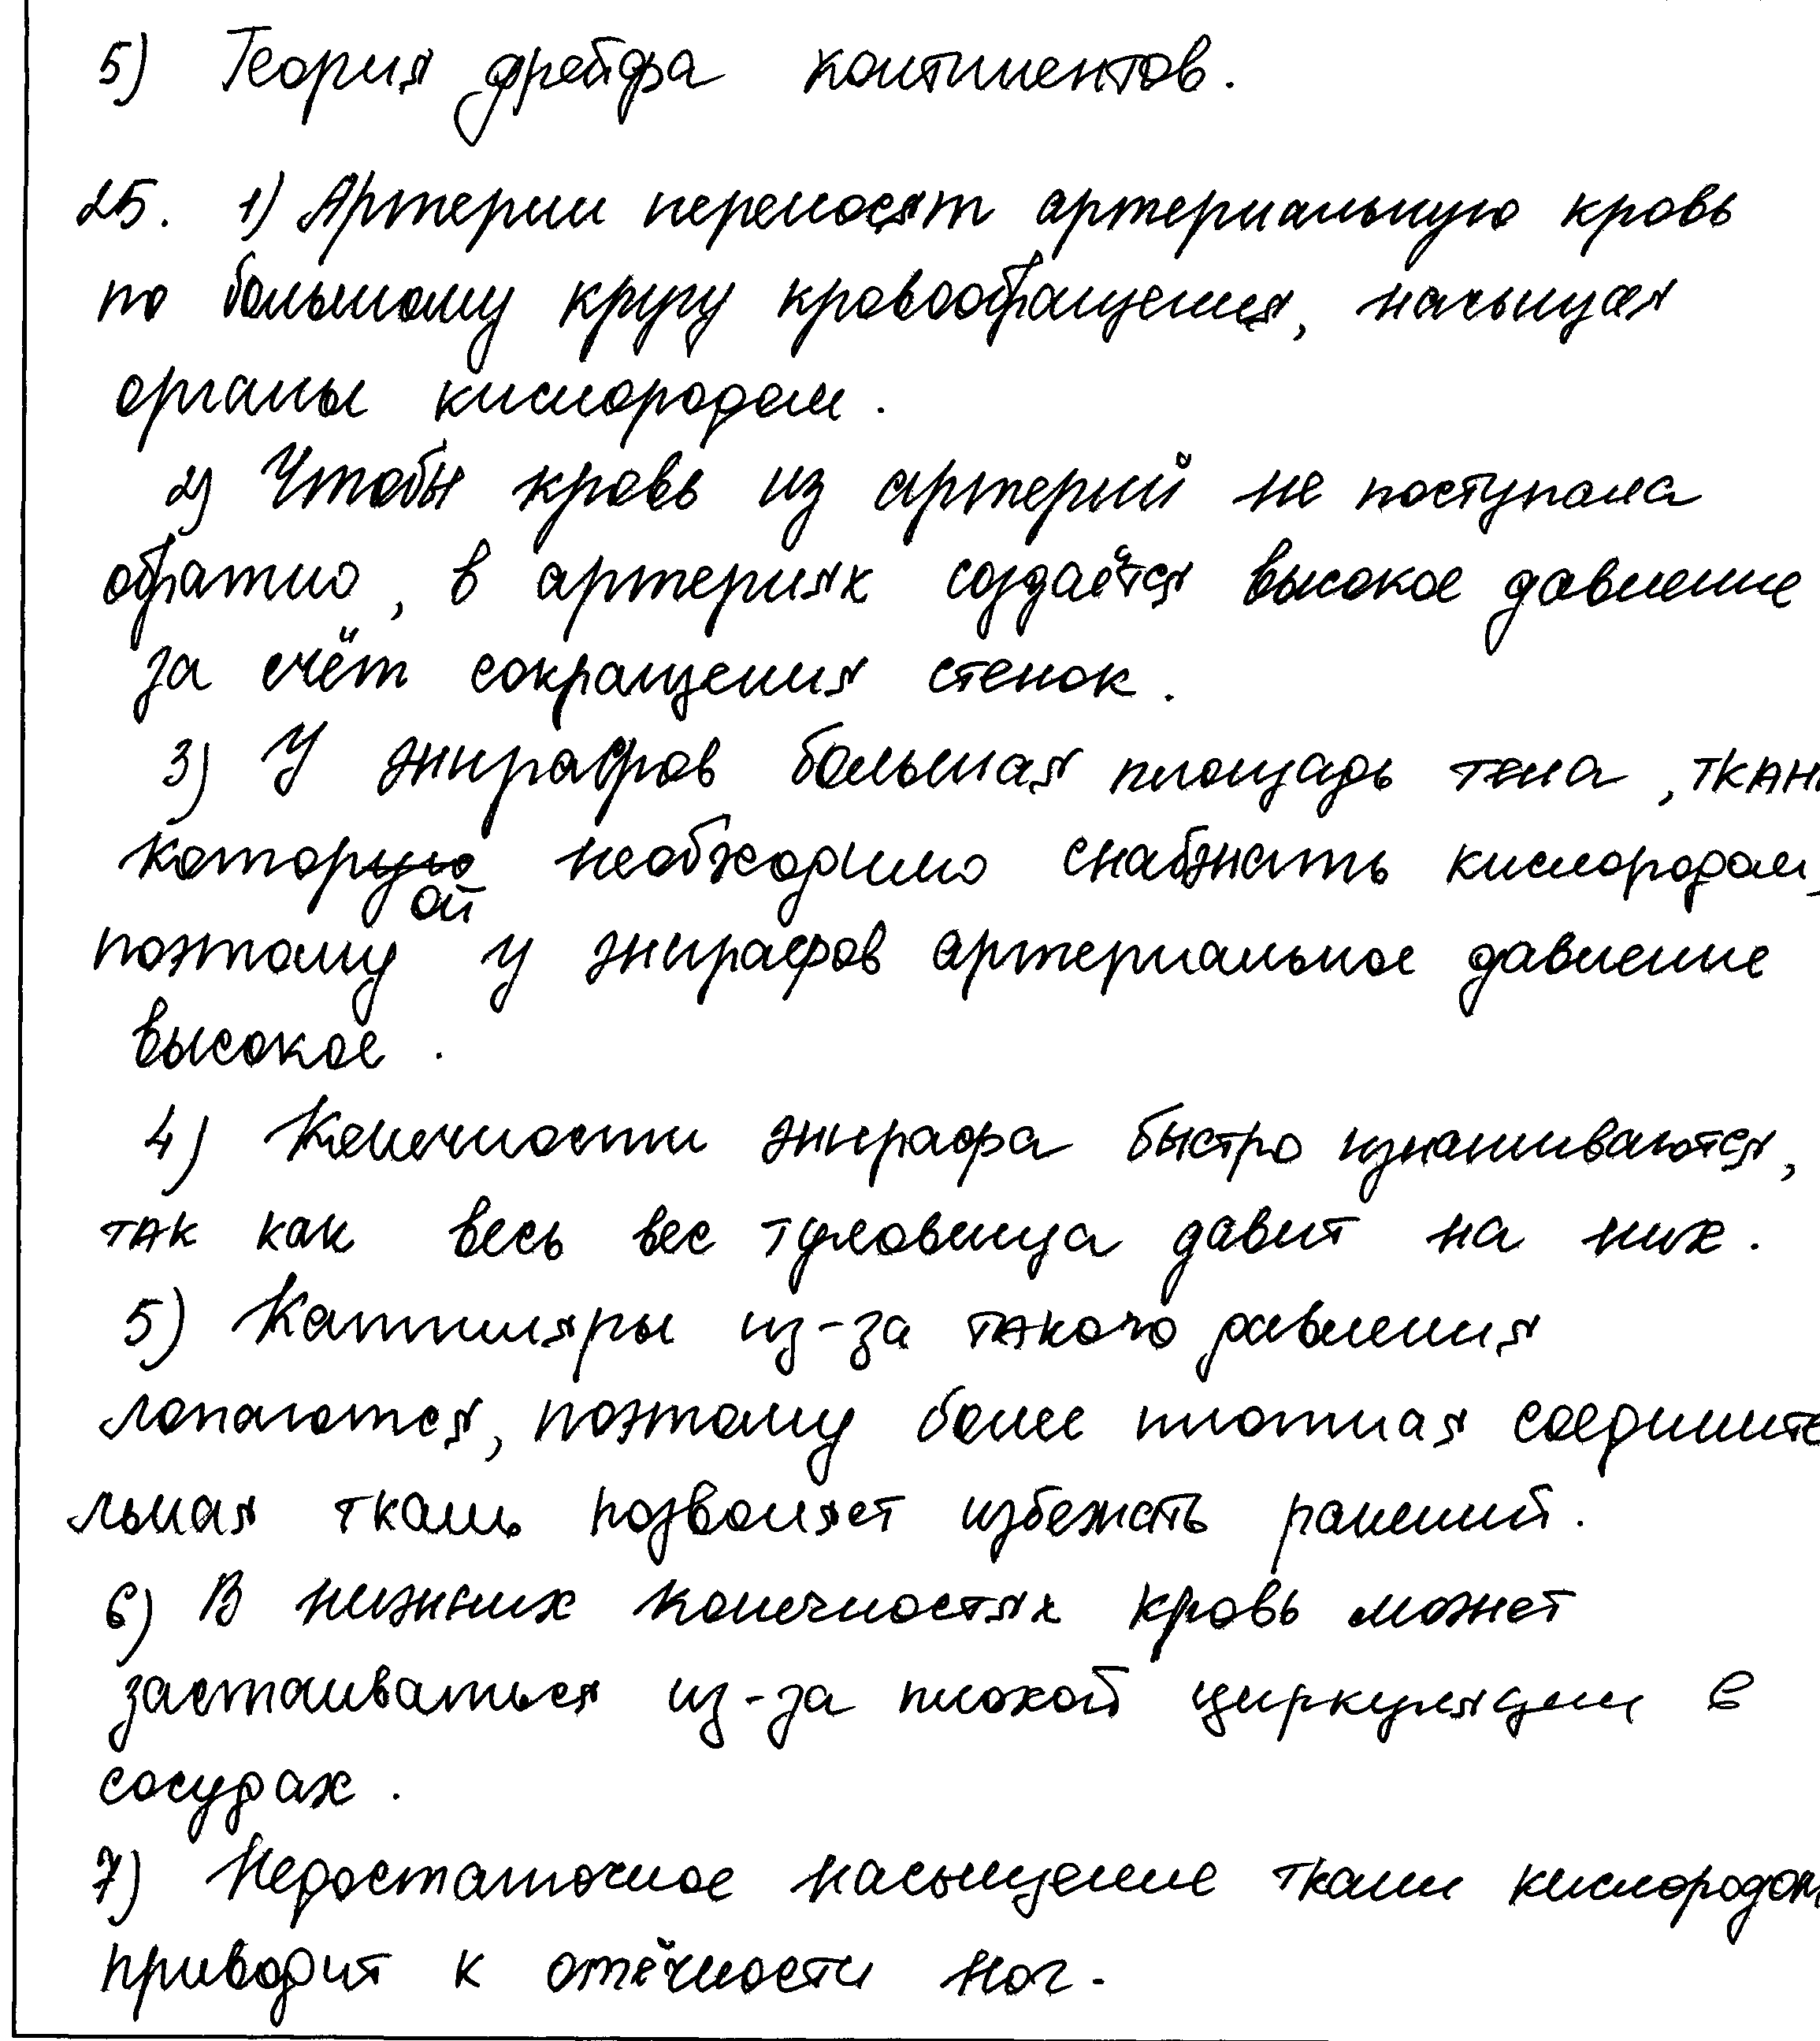 5) Теория дрейфа континентов.
25. 1) Артерии переносят артериальную кровь
по большому кругу кровообращения, насыщая
органы кислородом.
2) Чтобы кровь из артерий не поступала
обратно, в артериях создаётся высокое давление
за счёт сокращения стенок.
3) У жирафов большая площадь тела, ткани
которой необходимо снабжать кислородом,
поэтому у жирафов артериальное давление
высокое.
4) Конечности жирафа быстро изнашиваются,
так как весь вес туловища давит на них.
5) Капилляры из-за такого давления
лопаются, поэтому более плотная соедините
льная ткань позволяет избежать ранений.
6) В нижних конечностях кровь может
застаиваться из-за плохой циркуляции в
сосудах.
7) Недостаточное насыщение ткани кислородом
приводит к отёчности ног.